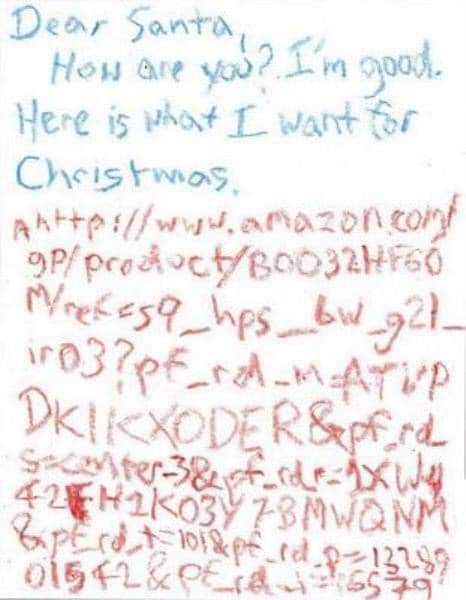 Dear Santa,
How are you? I'm good.
Here is what I want for
Christmas.
A http://www.amazon.com/
gp/product/B0032HF60
M/ref=s9_hps_bw_g21_
ir03?pf_rd_m=ATVP
DKIKX0DER&pf_rd_
s=center-3&pf_rd_r=1XWY
42EH1K03Y7BMWQNM
&pf_rd_t=101&pf_rd_p=13289
01542&pf_rd_i=16579